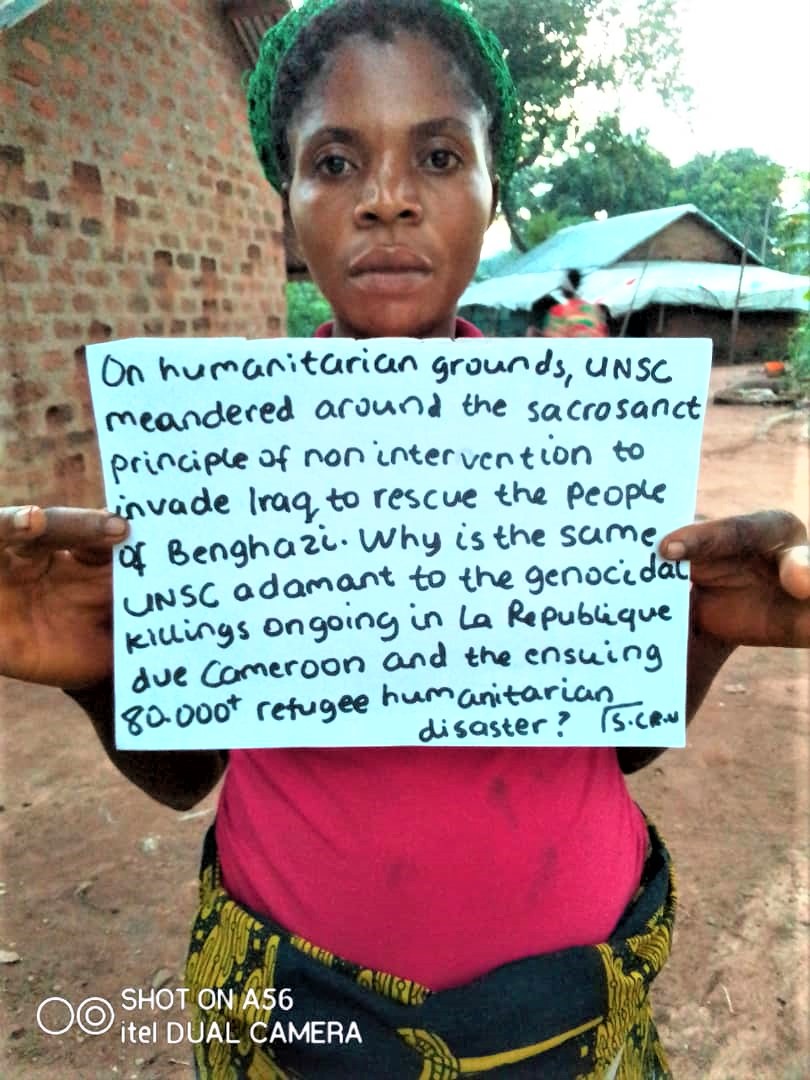 On humanitarian grounds, UNSC
meandered around the sacrosanct
principle of non intervention to
invade Iraq to rescue the people
of Benghazi. Why is the same
UNSC adamant to the genocidal
killings ongoing in La Republique
due Cameroon and the ensuing
80.000+ refugee humanitarian
disaster? S.CR.N
SHOT ON A56
itel DUAL CAMERA